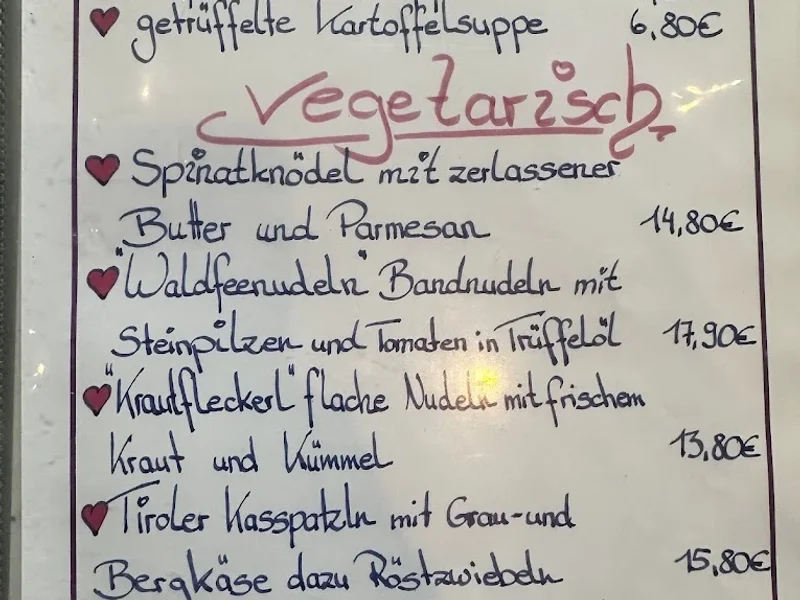 getrüffelte Kartoffelsuppe 6,80€
Vegetarisch
Spinatknödel mit zerlassener
Butter und Parmesan 14,80€
"Waldfeenudeln" Bandnudeln mit
Steinpilzen und Tomaten in Trüffelöl 17,90€
"Krautfleckerl" flache Nudeln mit frischem
Kraut und Kümmel 13,80€
Tiroler Kasspatzln mit Grau-und
Bergkäse dazu Röstzwiebeln 15,80€